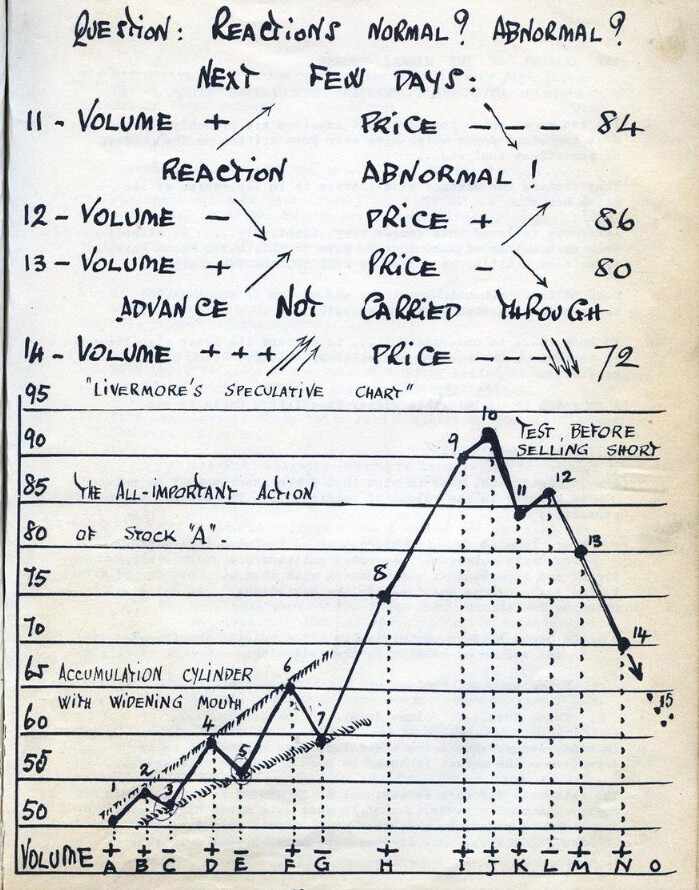 QUESTION: REACTIONS NORMAL? ABNORMAL?
NEXT FEW DAYS:
11 - VOLUME + PRICE - - - 84
REACTION ABNORMAL!
12 - VOLUME - PRICE + 86
13 - VOLUME + PRICE - 80
ADVANCE NOT CARRIED THROUGH
14 - VOLUME + + + PRICE - - - 72
95 "LIVERMORE'S SPECULATIVE CHART"
10
90 9 TEST, BEFORE
SELLING SHORT
85 THE ALL-IMPORTANT ACTION 11 12
80 OF STOCK "A". 13
75 8
70 14
65 ACCUMULATION CYLINDER 6 15
WITH WIDENING MOUTH
60 4 7
55 2 3 5
50
VOLUME + + - + - + - + + + + - + +
A B C D E F G H I J K L M N O